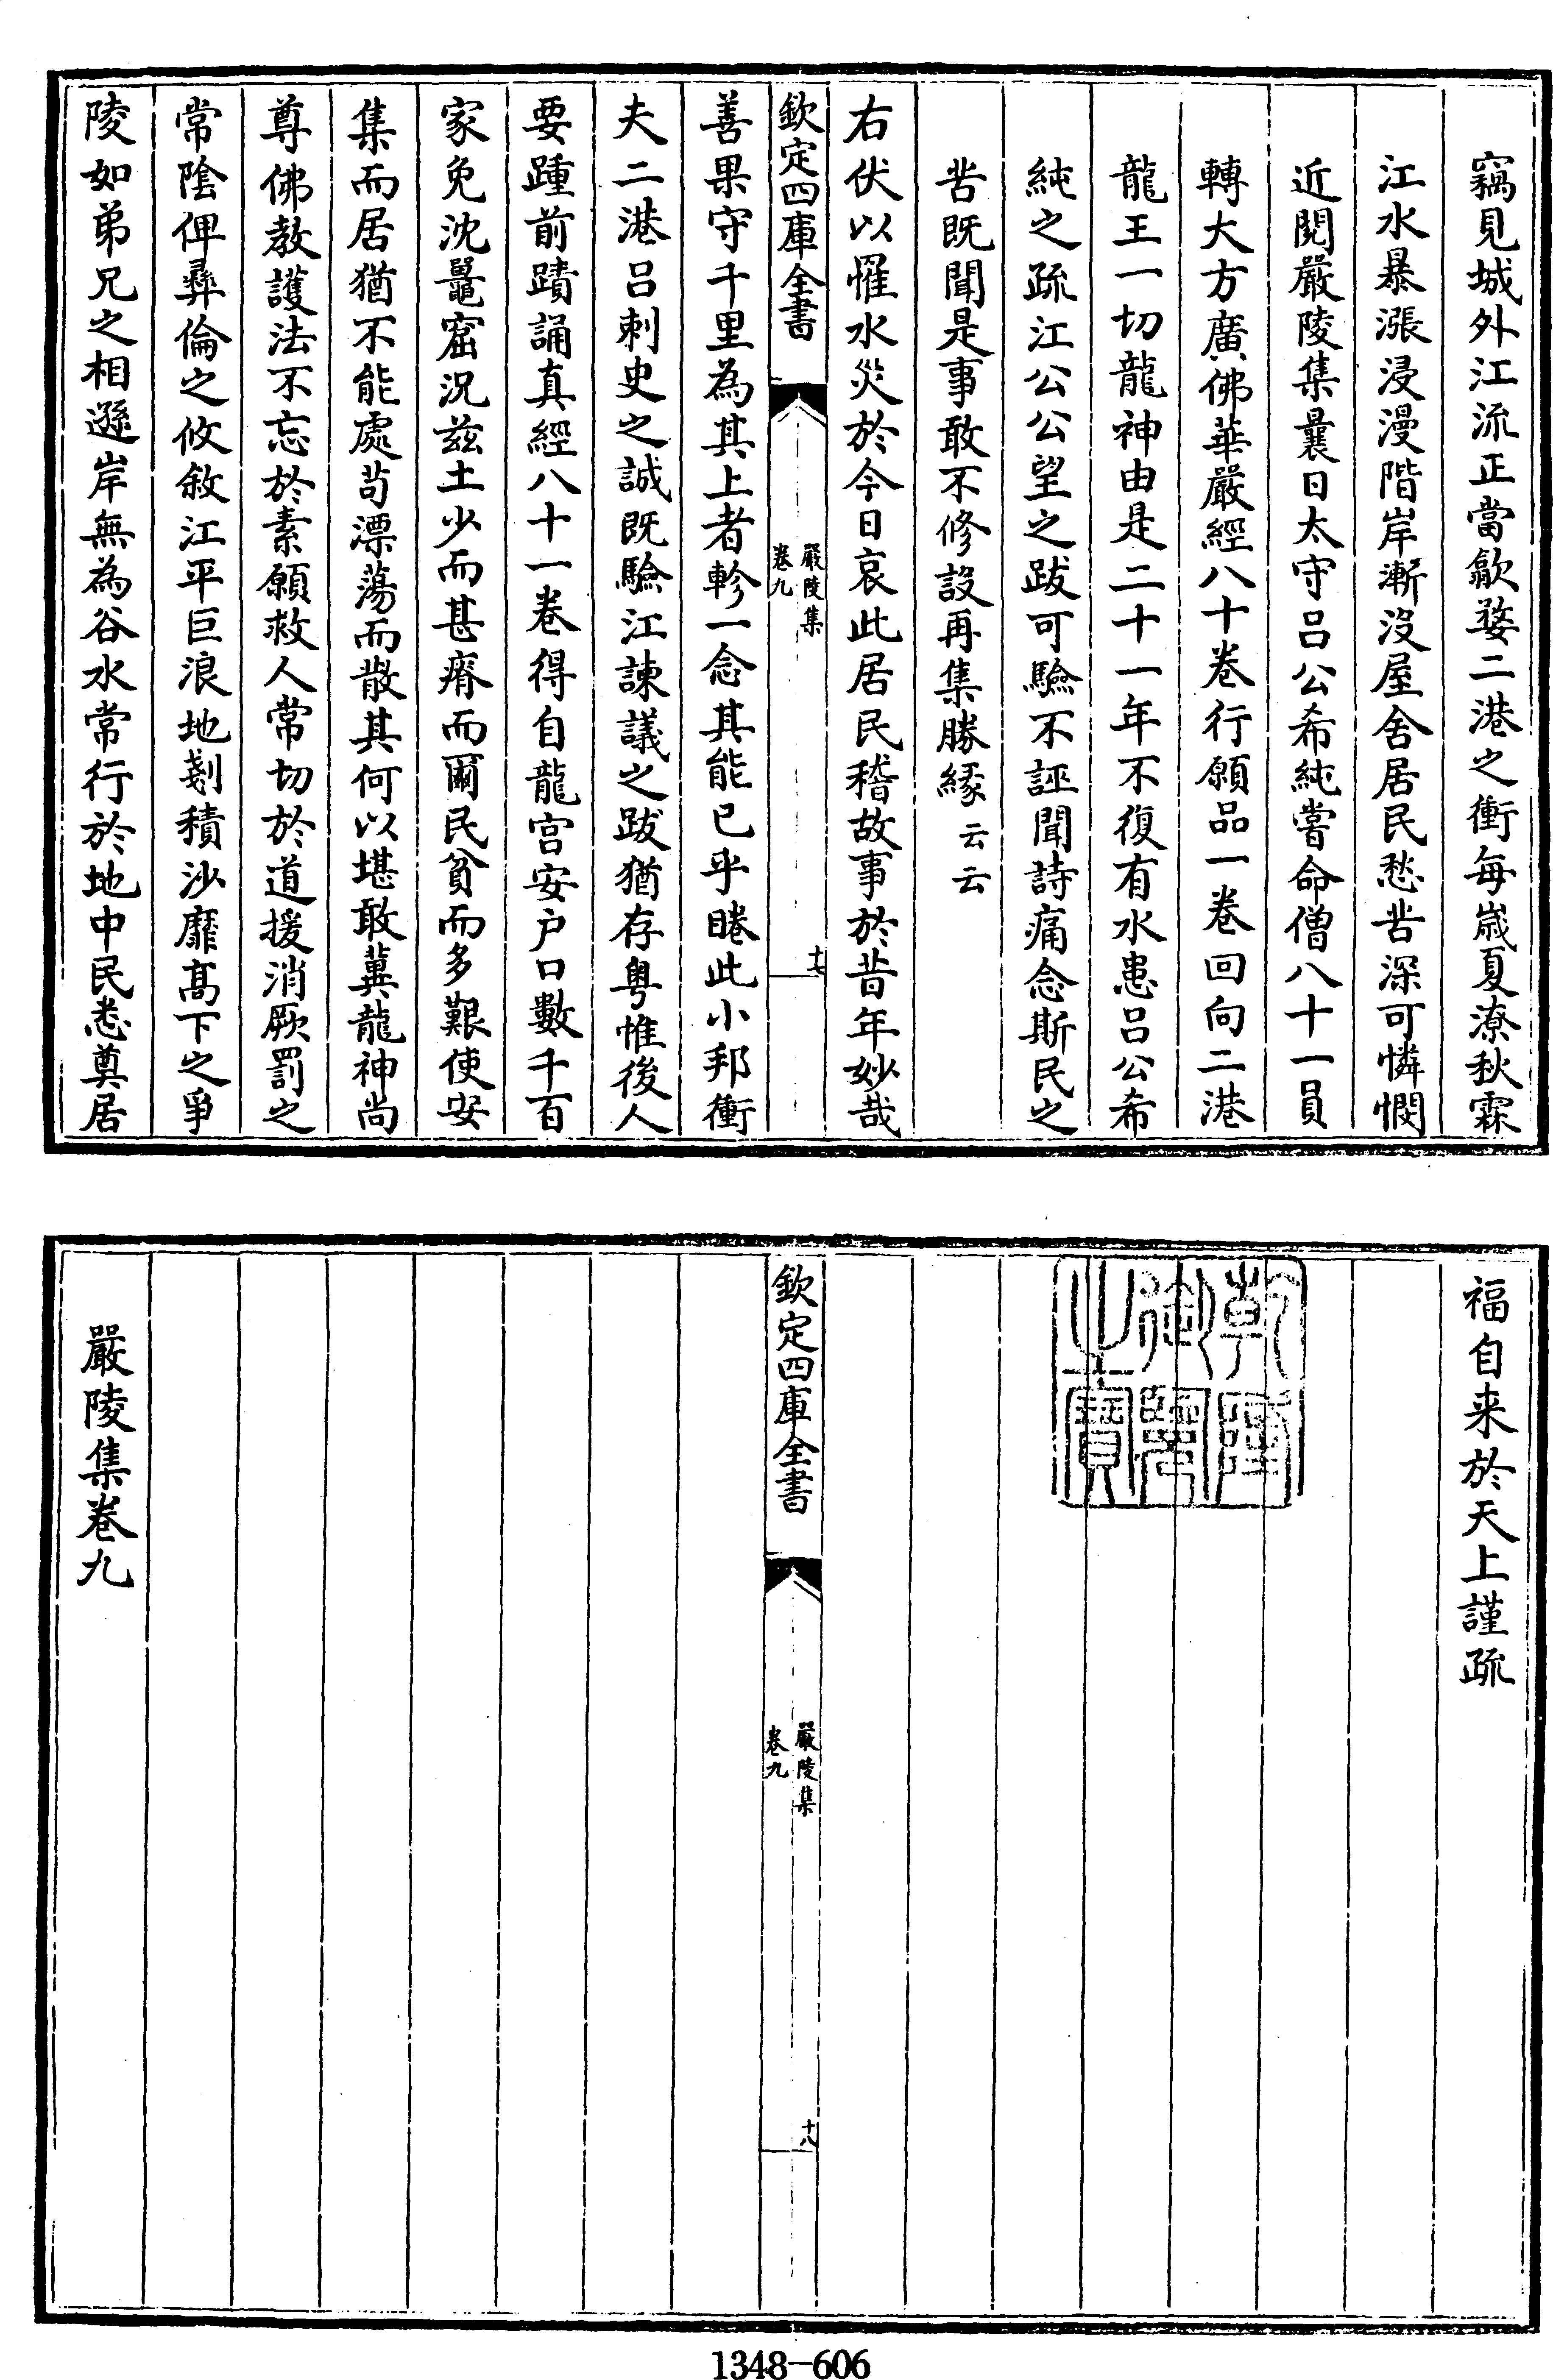 竊見城外江流正當歙婺二港之衝每歲夏潦秋霖
江水暴漲浸漫階岸漸沒屋舍居民愁苦深可憐憫
近閱嚴陵集曩日太守呂公希純嘗命僧八十一員
轉大方廣佛華嚴經八十卷行願品一卷回向二港
龍王一切龍神由是二十一年不復有水患呂公希
純之疏江公公望之跋可驗不誣聞詩痛念斯民之
苦既聞是事敢不修設再集勝緣云云
右伏以罹水災於今日哀此居民稽故事於昔年妙哉
欽定四庫全書
嚴陵集
卷九
十七
善果守千里為其上者軫一念其能已乎睠此小邦衝
夫二港呂刺史之誠既驗江諫議之跋猶存粤惟後人
要踵前蹟誦真經八十一卷得自龍宫安户口數千百
家免沈鼉窟況兹土少而甚瘠而爾民貧而多艱使安
集而居猶不能處茍漂蕩而散其何以堪敢冀龍神尚
尊佛教護法不忘於素願救人常切於道援消厥罰之
常陰俾彞倫之攸敘江平巨浪地剗積沙靡髙下之爭
陵如弟兄之相遜岸無為谷水常行於地中民悉奠居
福自来於天上謹疏
乾隆御覽之寶
欽定四庫全書
嚴陵集
卷九
十八
嚴陵集卷九
1348-606